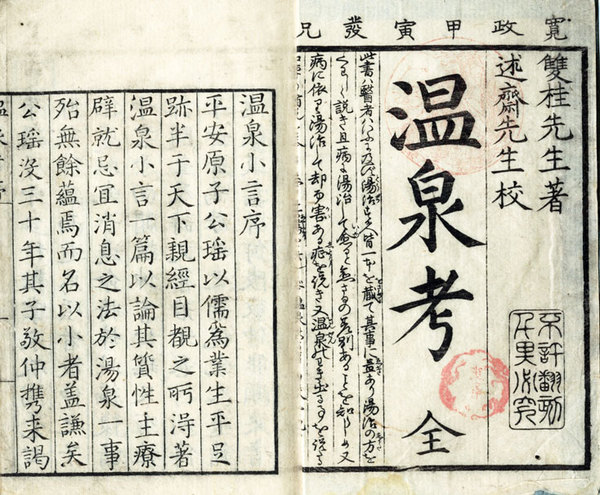 寛政甲寅發兌
雙桂先生著
述齋先生校
温泉考 全
不許翻刻
千里必究
此書ハ醫者ハいふに及ばず湯治する人皆一本を蔵て其事に益あり湯治の方を
くわしく説き且病に湯治して愈ると愈さるの差別あることを知らしめ又
病に依り湯治して却而害ある症を説き又温泉の
温泉小言序
平安原子公瑶以儒為業生平足
跡半于天下親經目覩之所得著
温泉小言一篇以論其質性主療
辟就忌宜消息之法於湯泉一事
殆無餘蘊焉而名以小者蓋謙矣
公瑶没三十年其子敬仲携来謁